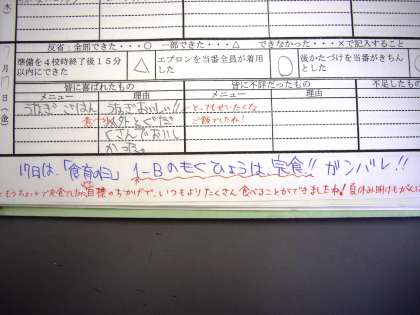 木
反省：全部できた・・・○　一部できた・・・△　できなかった・・・×で記入すること
準備を４校時終了後１５分以内にできた
△
エプロンを当番全員が着用した
○
後かたづけを当番がきちんとした
7月
日
(金)
皆に喜ばれたもの
皆に不評だったもの
不足したもの
メニュー
理由
メニュー
理由
メニュー
うなぎごはん
うなぎおいしい!!
とってもぜいたくな
ご飯でしたね！
以外と
くさんでおいし
かった。
17日は、「食育の日」 1-Bのもくひょうは、完食!! ガンバレ!!
もうちょっとで完食でしたね
目標のおかげで、いつもよりたくさん食べることができましたね！夏休み明けもがんば